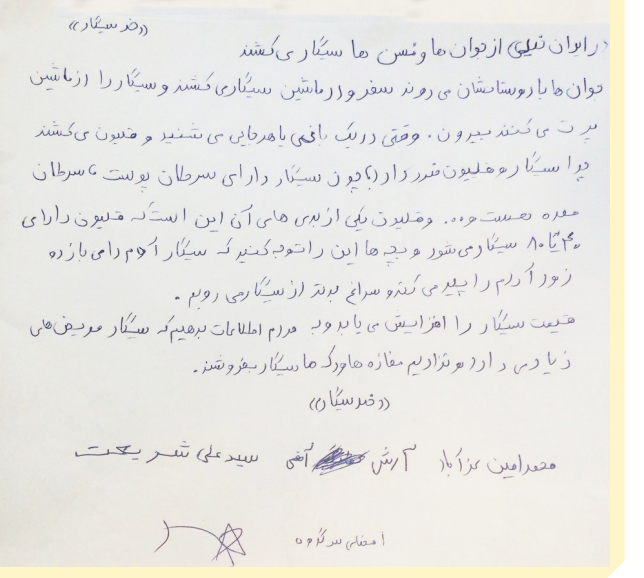 ((ضد سیگار))
در ایران خیلی از جوان ها و مسن ها سیگار می کشند
جوان ها با دوستانشان می روند سفر و در ماشین سیگار می کشند و سیگار را از ماشین
پرت می کنند بیرون. وقتی در یک باغی یا هرجایی می شنید و قلیون می کشند
چرا سیگار و قلیون ضرر دارد؟ چون سیگار دارای سرطان پوست، سرطان
معده هست و... و قلیون یکی از بدی های آن این است که قلیون دارای
۴۰ تا ۸۰ سیگار می شود و بچه ها این را توجه کنید که سیگار آدم را می بازده
زود آدم را پیر می کند و سراغ بدتر از سیگار می رویم.
قیمت سیگار را افزایش می یابد و به مردم اطلاعات بدهیم که سیگار مریض های
زیادی دارد و نزاریم مغازه ها و دکه ها سیگار بفروشند.
((ضد سیگار))
محمد امین آرش سید علی شریعت
امضای سرگروه